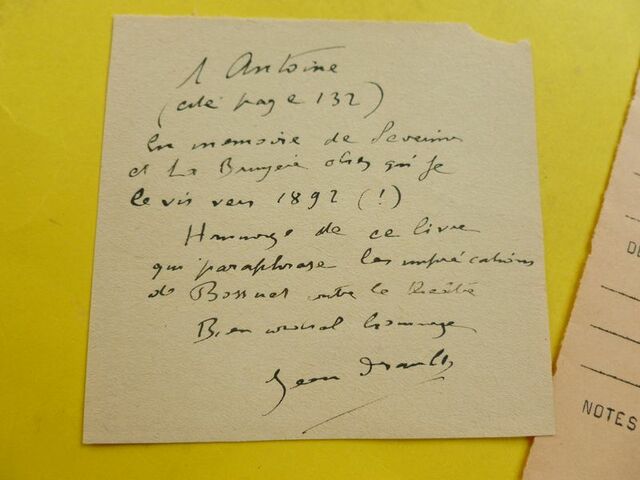 A Antoine
(cité page 132)
En memoire de Severine
et La Bruyere chez qui je
le vis vers 1892 (!)
Hommage de ce livre
qui paraphrase les imprécations
de Bossuet contre le théâtre
Bien cordial hommage
Jean Drault
DE
NOTES